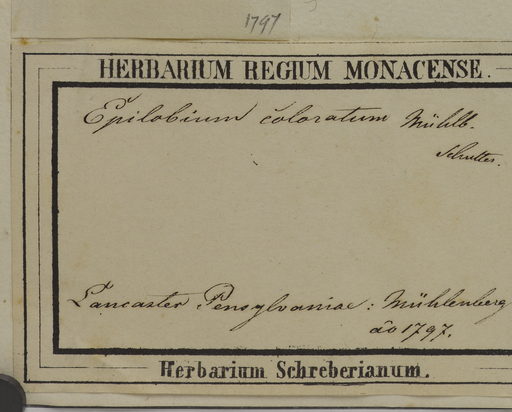 1797
HERBARIUM REGIUM MONACENSE.
Epilobium coloratum Mühlb.
Lancaster Pensylvaniae: Mühlenberg
ao 1797.
Herbarium Schreberianum.